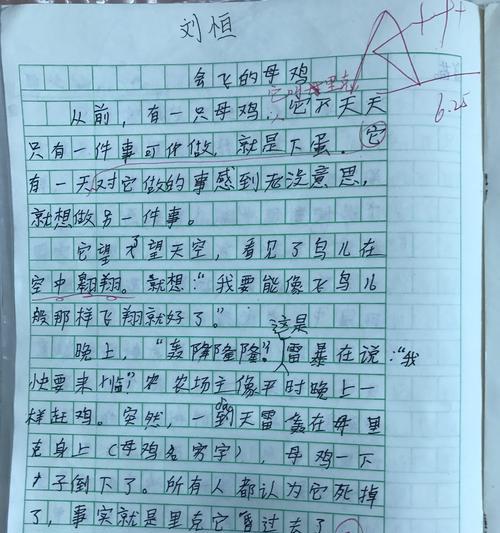 刘恒
会飞的母鸡
它叫里克
从前，有一只母鸡，它天天
只有一件事可做，就是下蛋。它
有一天对它做的事感到无没意思，
就想做另一件事。
它望了望天空，看见了鸟儿在
空中翱翔。就想：“我要能像飞鸟儿
般那样飞翔就好了。”
这是
晚上，“轰隆隆隆！”雷暴在说：“我
快要来临！”农场主像平时晚上一
样赶鸡。突然，一到天雷轰在母里
克身上（母鸡名字），母鸡一下
子倒下了。所有人都认为它死掉
了，事实就是里克它昏过去了
6.25